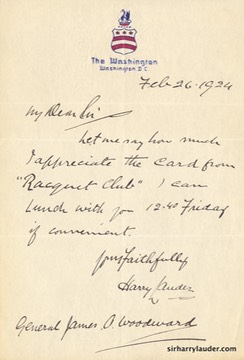 The Washington
Washington D.C.
Feb 26-1924
My Dear Sir
Let me say how much
I appreciate the card from
"Racquet Club" I can
Lunch with you 12.40 Friday
if convenient.
Yours Faithfully
Harry Lauder
General James O. Woodward
sirharrylauder.com